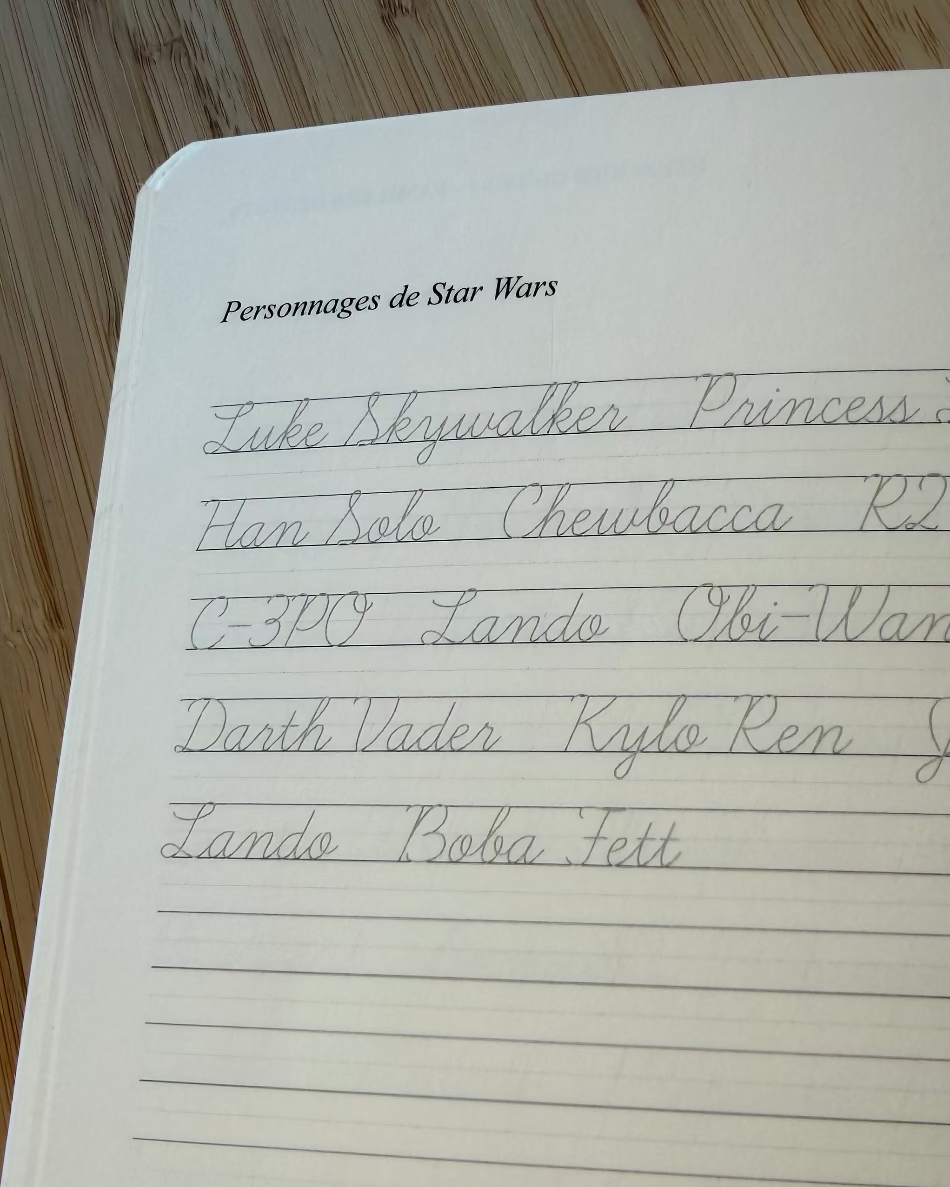 Personnages de Star Wars
Luke Skywalker Princess
Han Solo Chewbacca R2
C-3PO Lando Obi-Wan
Darth Vader Kylo Ren
Lando Boba Fett